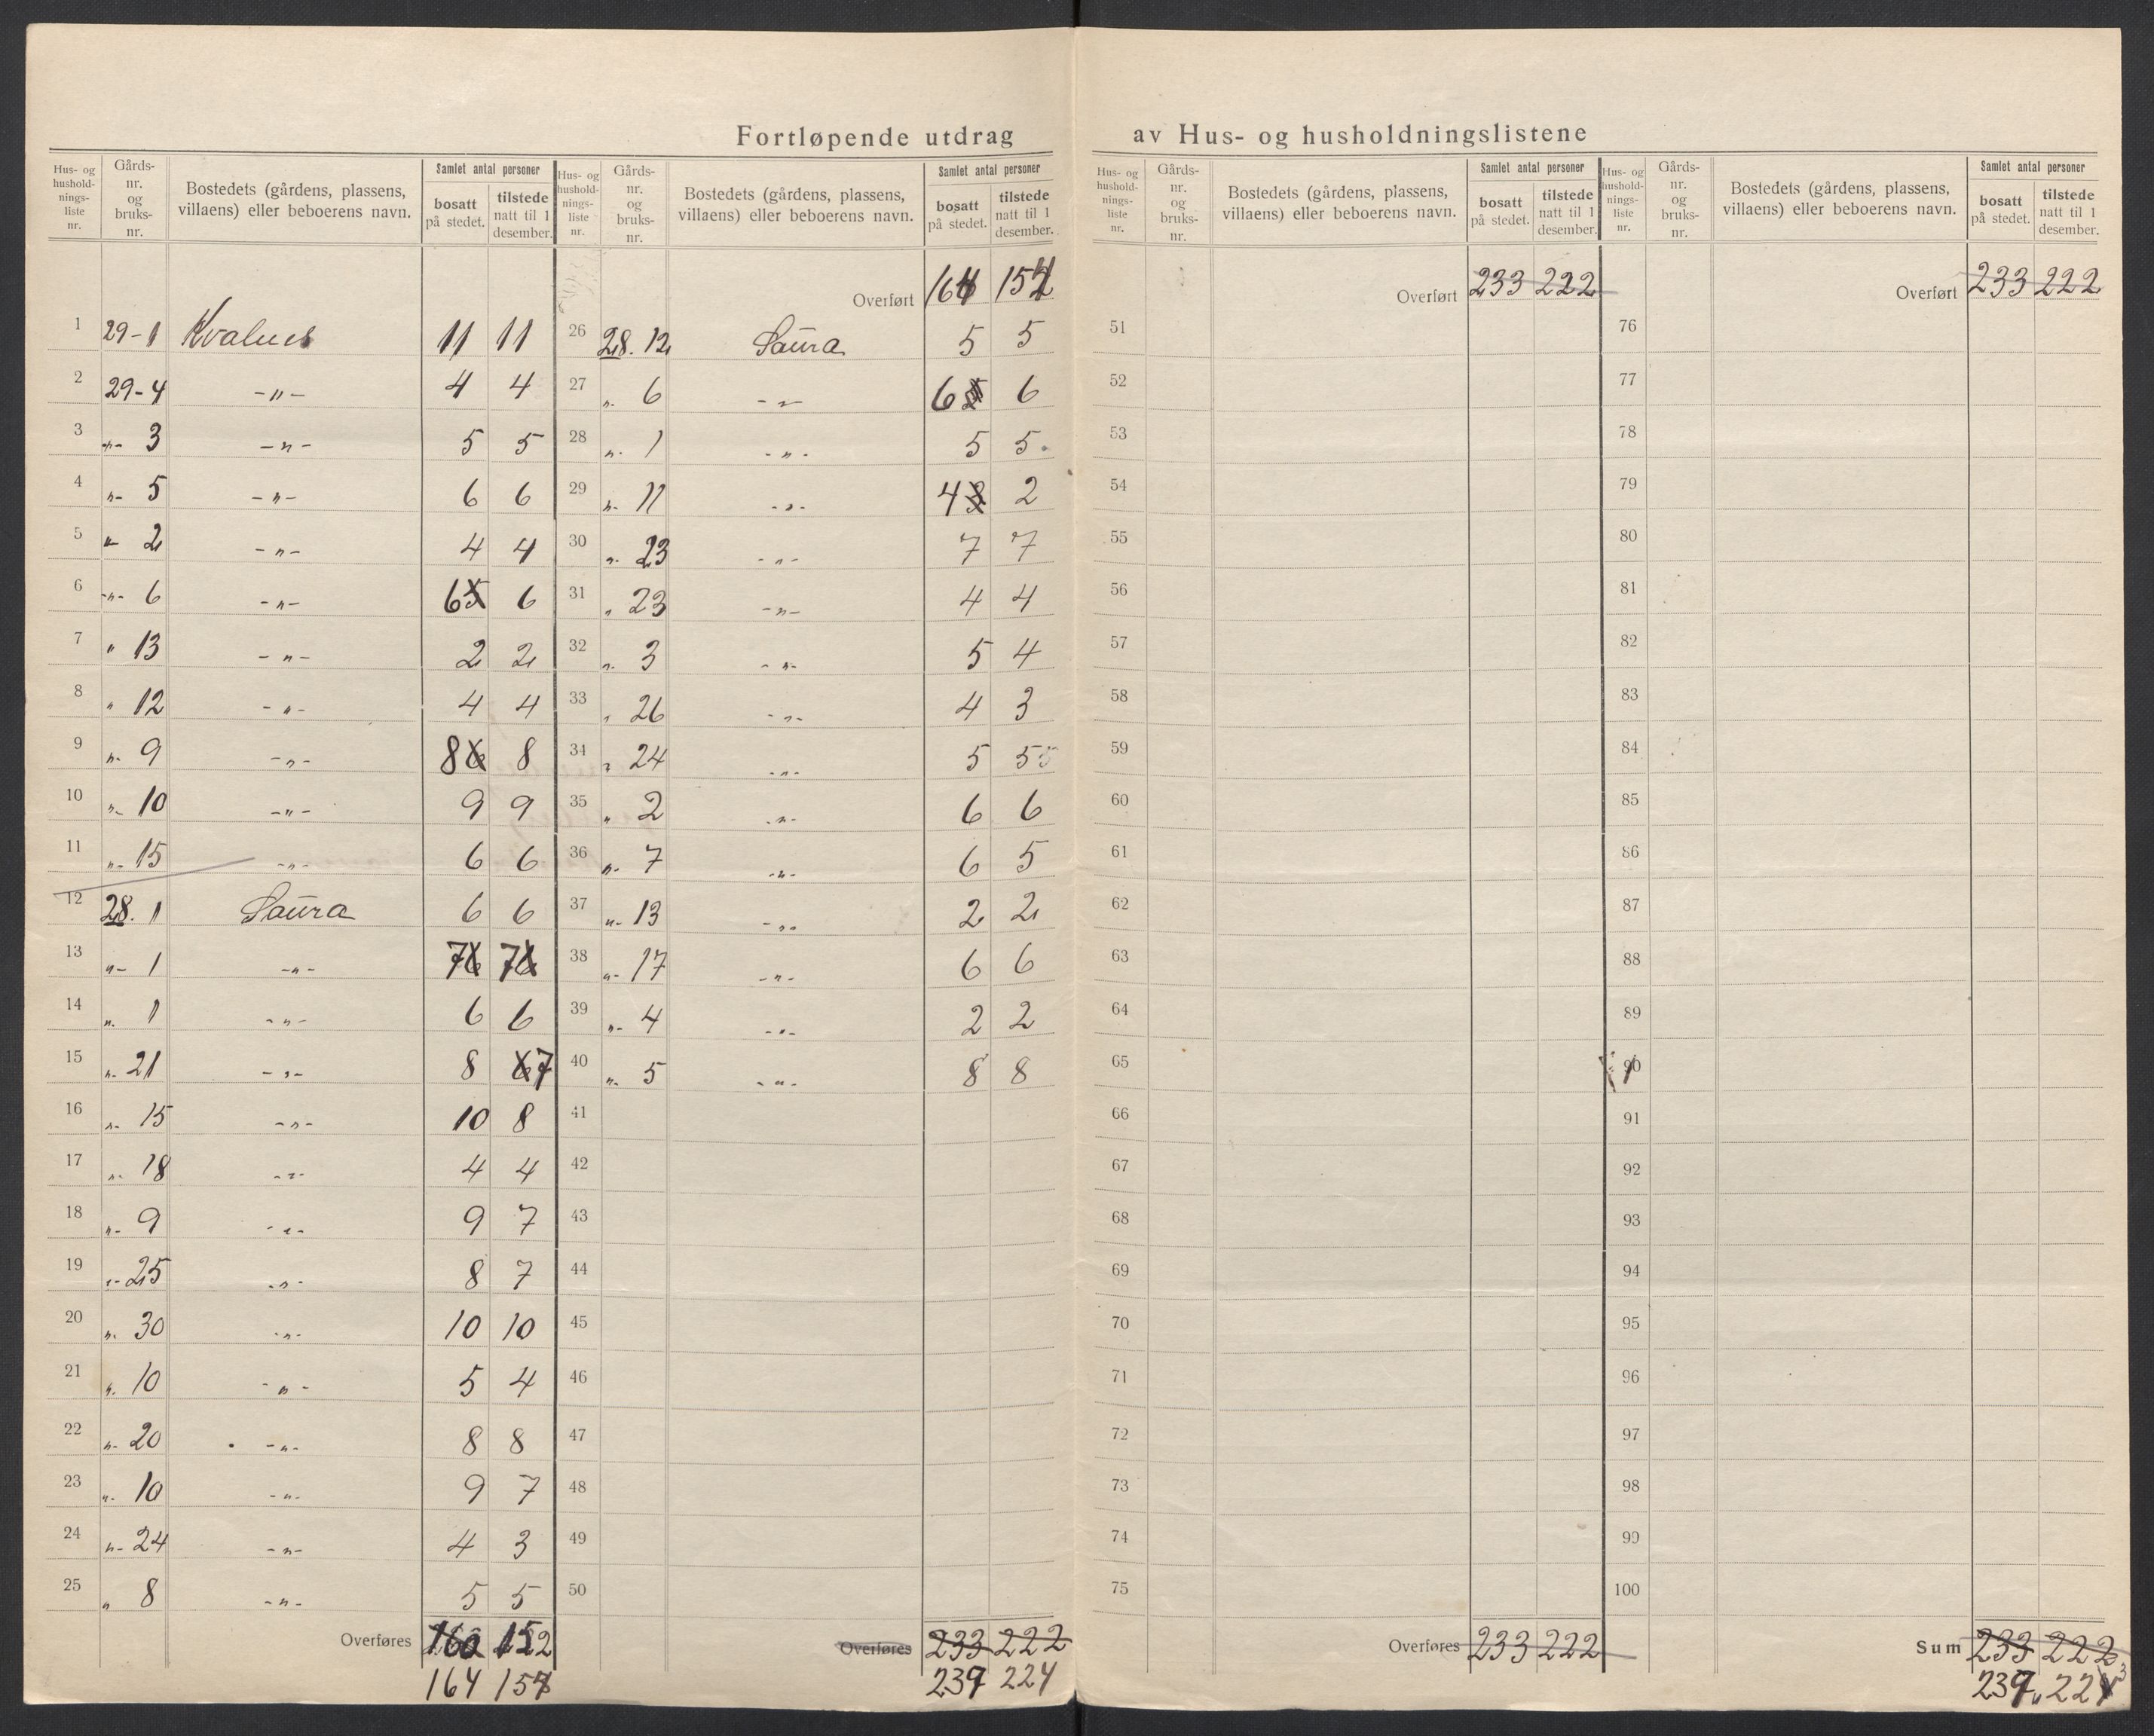 Fortløpende utdrag av Hus- og husholdningslistene
Hus- og husholdnings-liste nr. | Gårds-nr. og bruks-nr. | Bostedets (gårdens, plassens, villaens) eller beboerens navn. | Samlet antal personer | bosatt på stedet. | tilstede natt til 1 desember.
1 29-1 Kvalnes 11 11
2 29-4 -"- 4 4
3 -"- 3 -"- 5 5
4 "- 5 -"- 6 6
5 "- 2 -"- 4 4
6 -"- 6 -"- 6 5 6
7 " 13 -"- 2 2
8 " 12 -"- 4 4
9 "- 9 -"- 8 6 8
10 "- 10 -"- 9 9
11 "- 15 -"- 6 6
12 28. 1 Saura 6 6
13 "- 1 -"- 7 6 7 6
14 ". 1 -"- 6 6
15 "- 21 -"- 8 6 7
16 "- 15 -"- 10 8
17 "- 18 -"- 4 4
18 "- 9 -"- 9 7
19 "- 25 -"- 8 7
20 "- 30 -"- 10 10
21 "- 10 -"- 5 4
22 "- 20 -"- 8 8
23 "- 10 -"- 9 7
24 "- 24 -"- 4 3
25 " 8 -"- 5 5
Overføres 160 152
164 157
Hus- og husholdnings-liste nr. | Gårds-nr. og bruks-nr. | Bostedets (gårdens, plassens, villaens) eller beboerens navn. | Samlet antal personer | bosatt på stedet. | tilstede natt til 1 desember.
Overført 164 154
26 28. 12 Saura 5 5
27 ". 6 -"- 6 5 6
28 ". 1 -"- 5 5
29 ". 11 -"- 4 3 2
30 ". 23 -"- 7 7
31 " 23 -"- 4 4
32 ". 3 -"- 5 4
33 " 26 -"- 4 3
34 " 24 -"- 5 5
35 " 2 -"- 6 6
36 "- 7 -"- 6 5
37 "- 13 -"- 2 2
38 "- 17 -"- 6 6
39 "- 4 -"- 2 2
40 "- 5 -"- 8 8
41
42
43
44
45
46
47
48
49
50
Overføres 233 222
239 224
Hus- og husholdnings-liste nr. | Gårds-nr. og bruks-nr. | Bostedets (gårdens, plassens, villaens) eller beboerens navn. | Samlet antal personer | bosatt på stedet. | tilstede natt til 1 desember.
Overført 233 222
51
52
53
54
55
56
57
58
59
60
61
62
63
64
65
66
67
68
69
70
71
72
73
74
75
Overføres 233 222
Hus- og husholdnings-liste nr. | Gårds-nr. og bruks-nr. | Bostedets (gårdens, plassens, villaens) eller beboerens navn. | Samlet antal personer | bosatt på stedet. | tilstede natt til 1 desember.
Overført 233 222
76
77
78
79
80
81
82
83
84
85
86
87
88
89
90
91
92
93
94
95
96
97
98
99
100
Sum 233 222
239 224 3